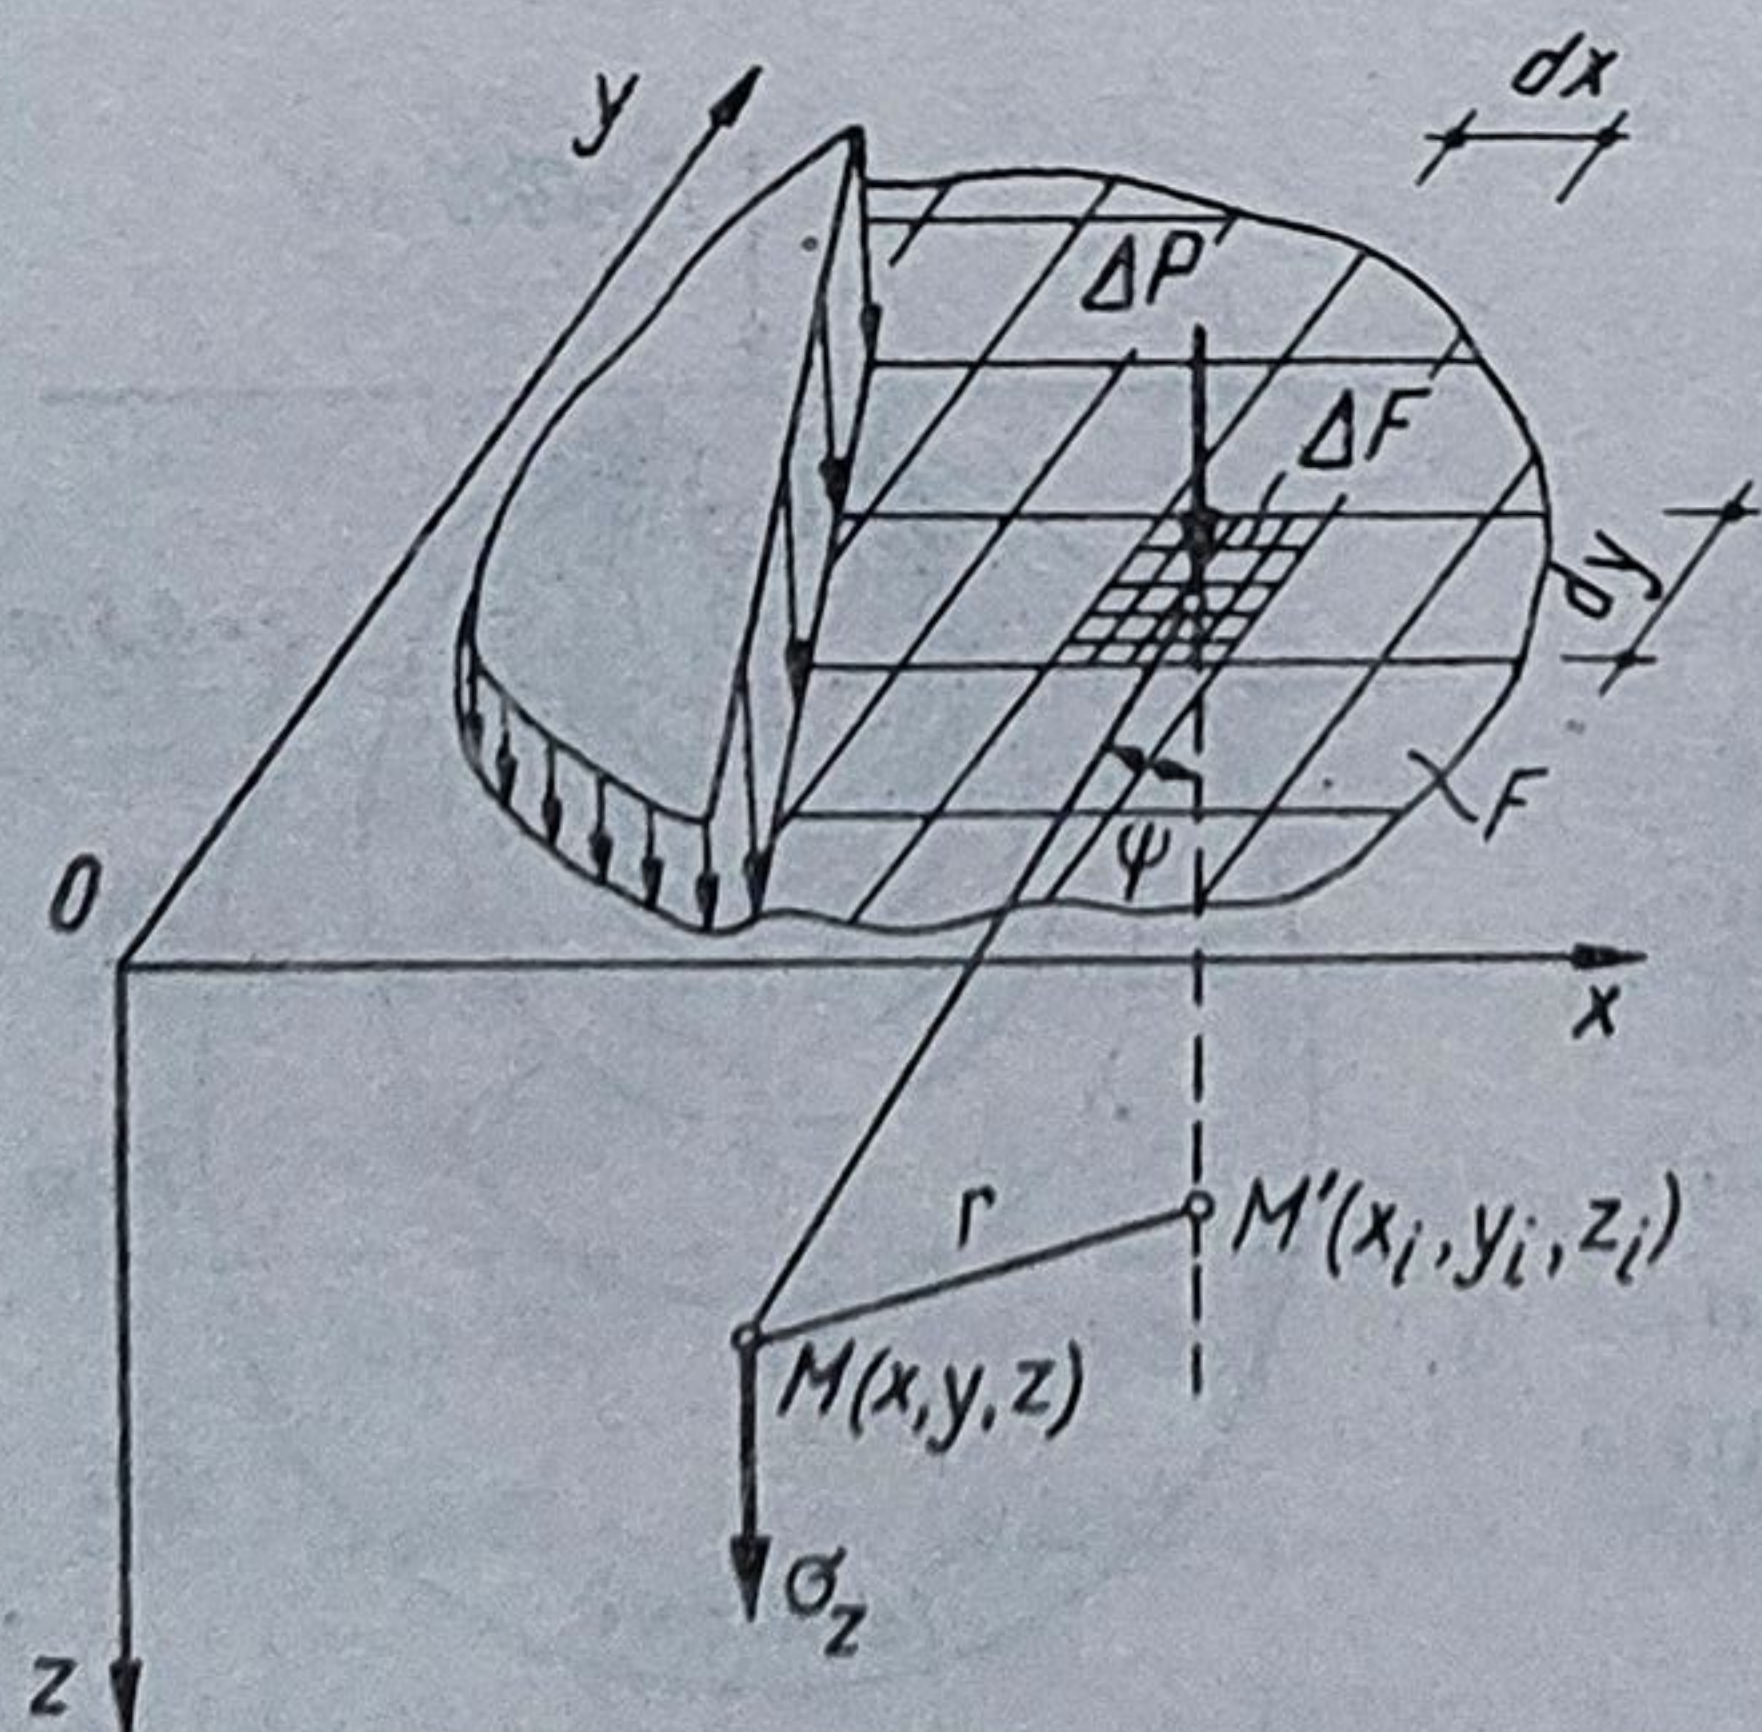 dx
y
ΔP
ΔF
dy
F
ψ
0
x
r
M'(xᵢ, yᵢ, zᵢ)
M(x, y, z)
σz
z